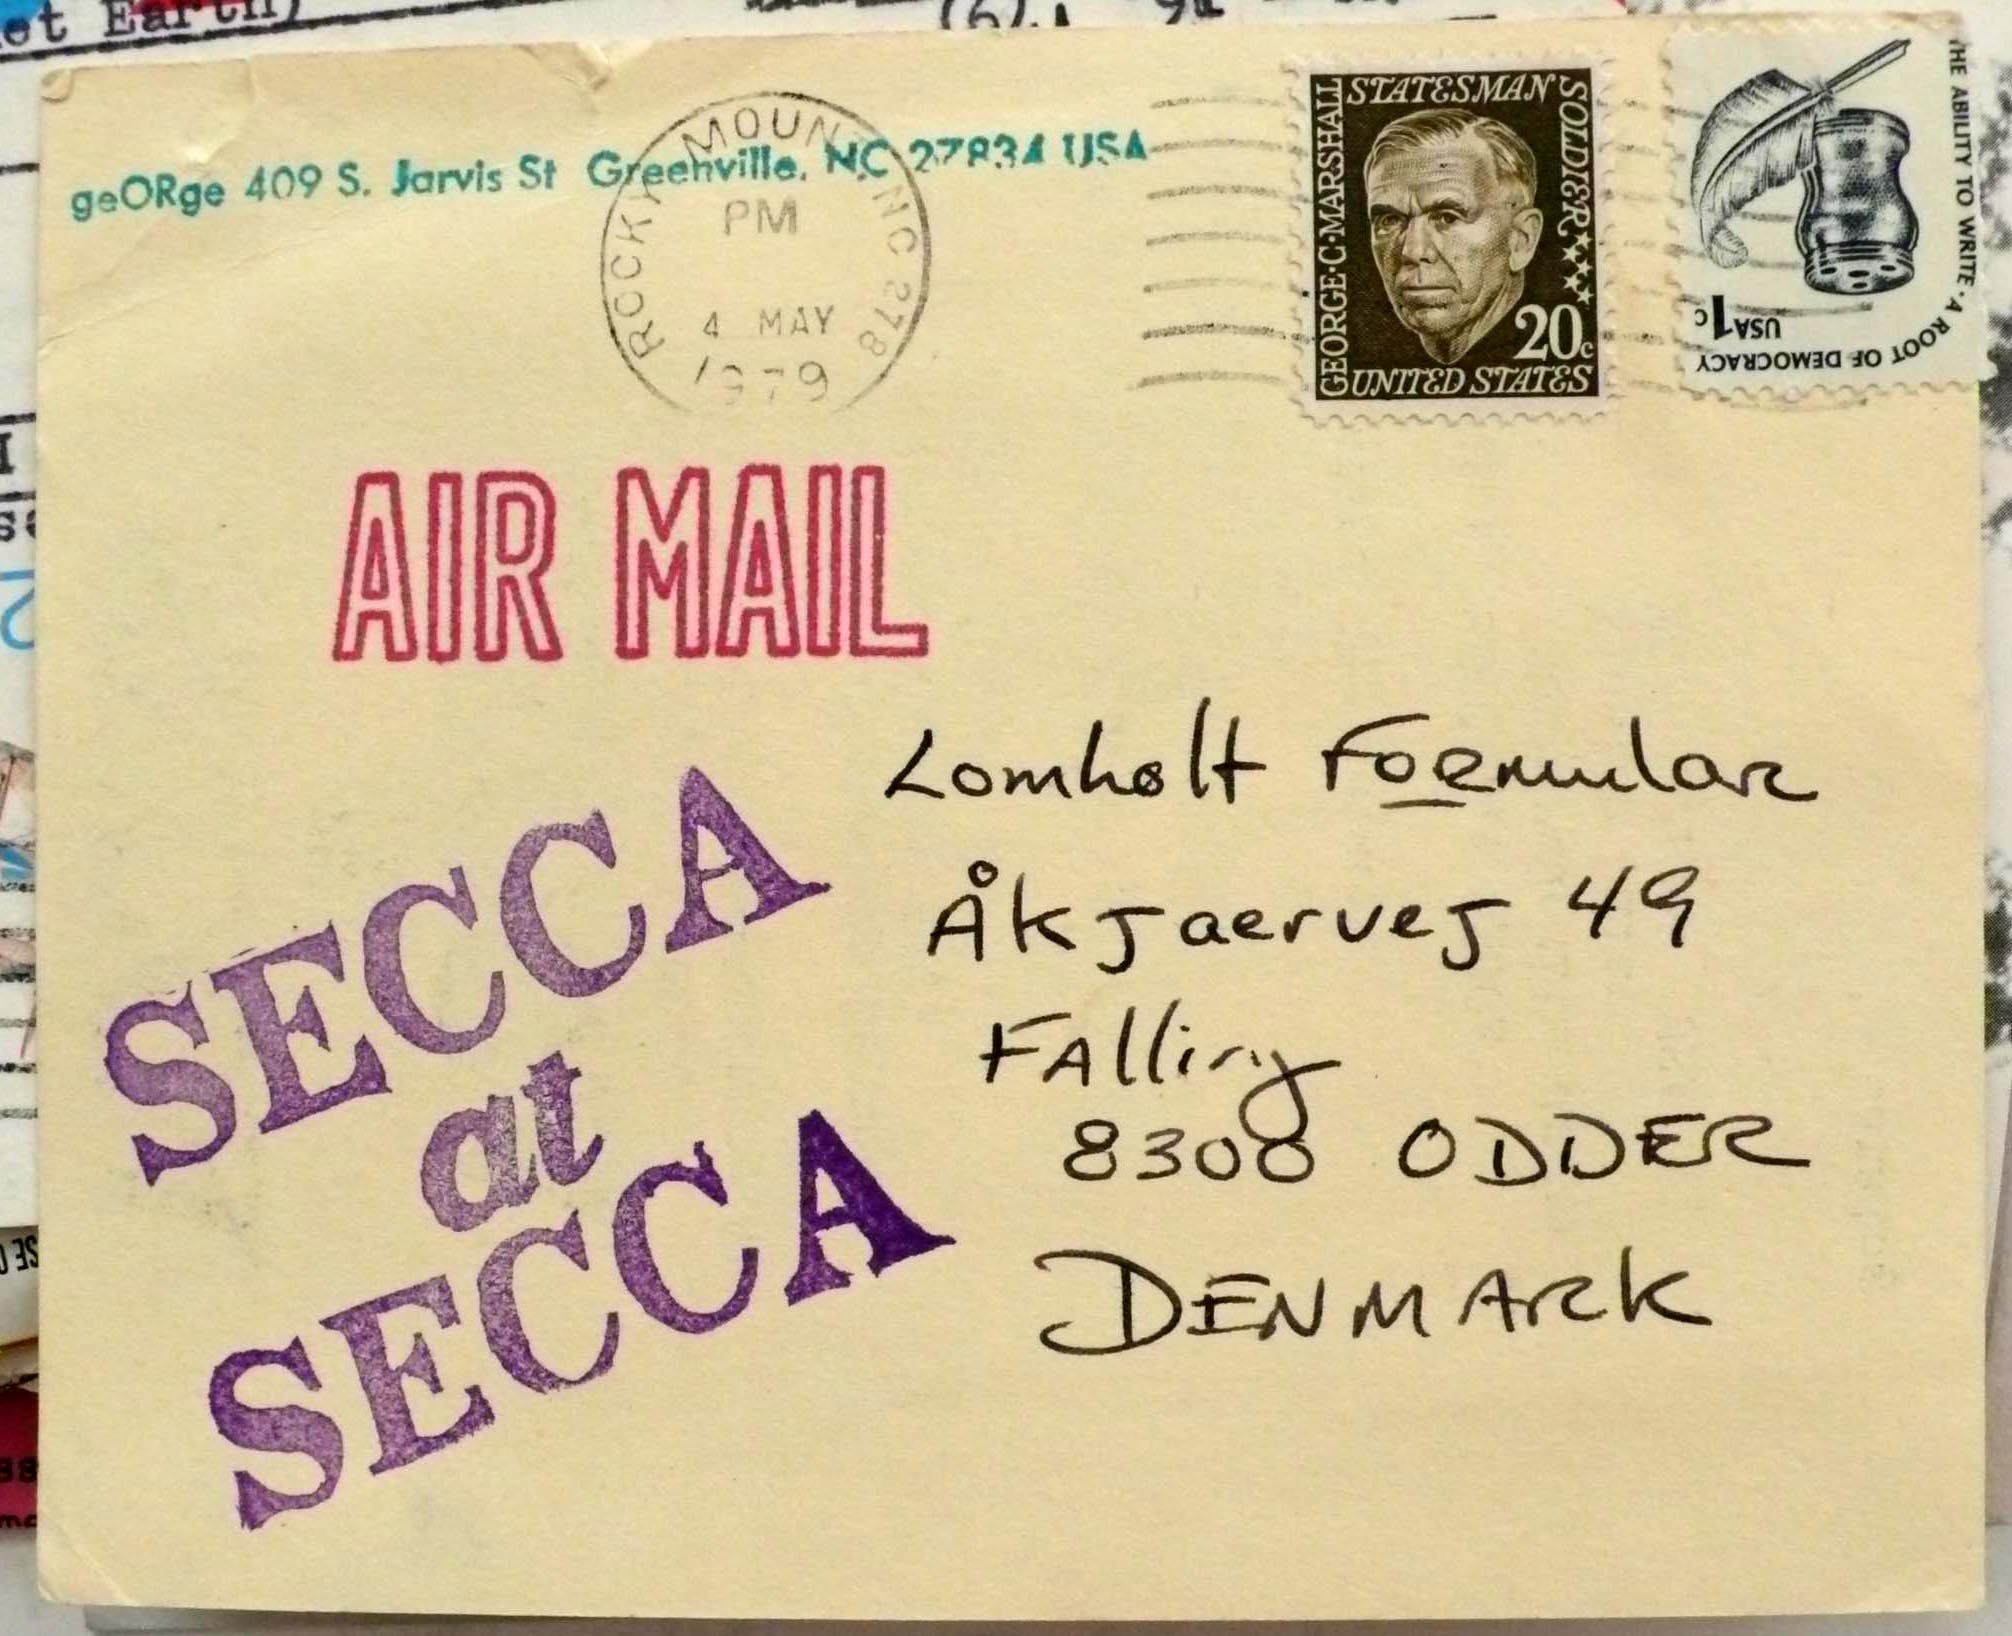 et Earth)
geORge 409 S. Jarvis St Greenville, NC 27834 USA
ROCKY MOUNT NC 278
PM
4 MAY
1979
GEORGE·C·MARSHALL
STATESMAN
SOLDIER
20c
UNITED STATES
THE ABILITY TO WRITE·A ROOT OF DEMOCRACY
USA 1c
AIR MAIL
Lomholt Formular
Åkjaervej 49
Falling
8300 ODDER
DENMARK
SECCA
at
SECCA